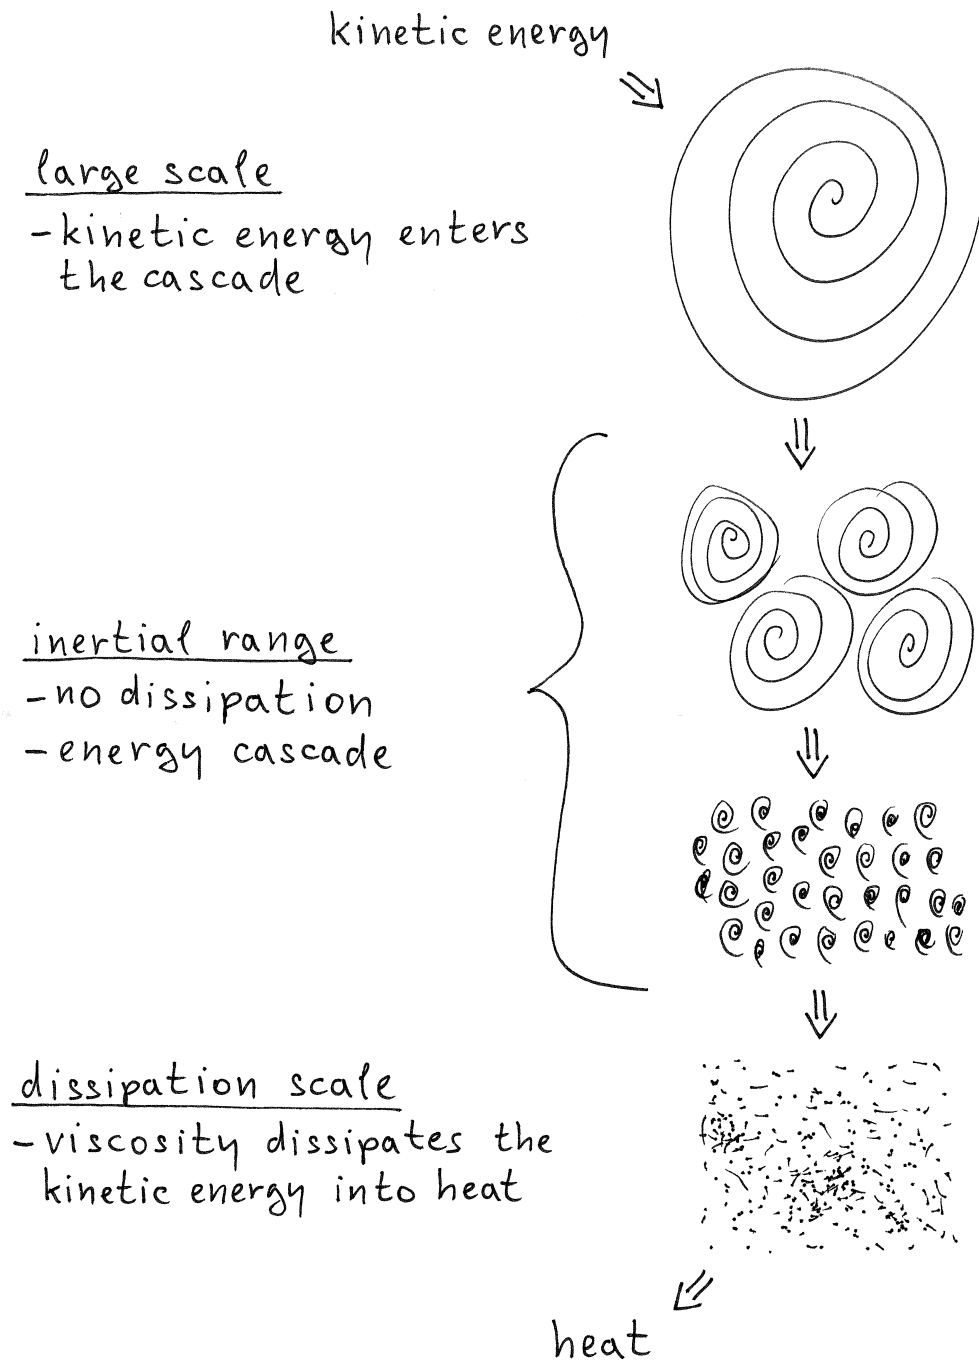 kinetic energy
large scale
-kinetic energy enters
the cascade
inertial range
-no dissipation
-energy cascade
dissipation scale
-viscosity dissipates the
kinetic energy into heat
heat